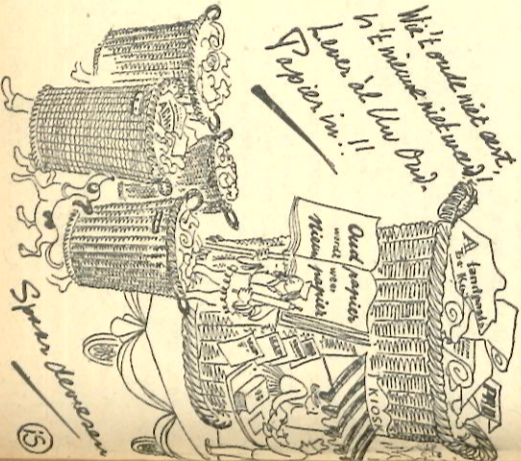 Wie't oude niet eert,
is't nieuwe niet weerd!
Lever al Uw Oud-
Papier in!!
Oud papier
wordt weer
Nieuw papier
KIOSK
Spaar deviezen
15